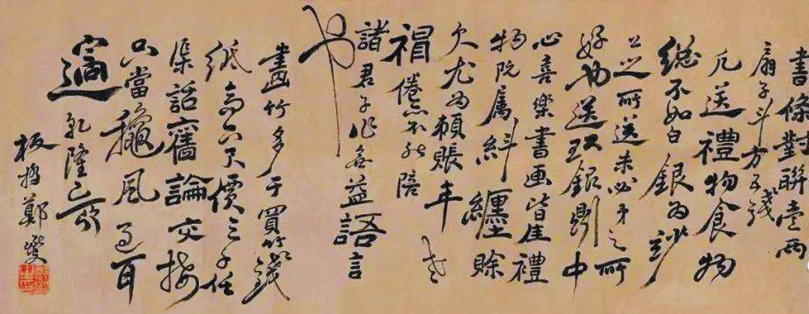 書條對聯壹兩
扇子斗方五錢
凡送禮物食物
總不如白銀為妙
公之所送未必弟之所
好也送現銀則中
心喜樂書画皆佳禮
物既属糾纏賒
欠尤為賴賬年老
神倦亦不能陪
諸君子作無益語言
也
畫竹多于買竹錢
紙高六尺價三千任
渠話舊論交接
只當龝風過耳
邊乾隆己卯
板橋鄭燮